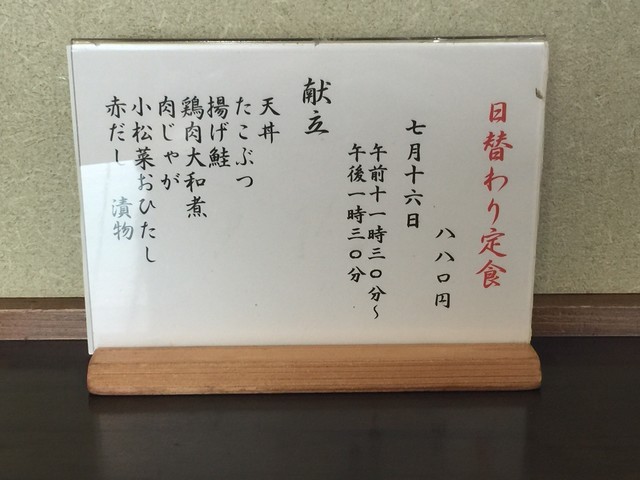 日替わり定食
八八〇円
七月十六日
午前十一時三〇分〜
午後一時三〇分
献立
天丼
たこぶつ
揚げ鮭
鶏肉大和煮
肉じゃが
小松菜おひたし
赤だし 漬物